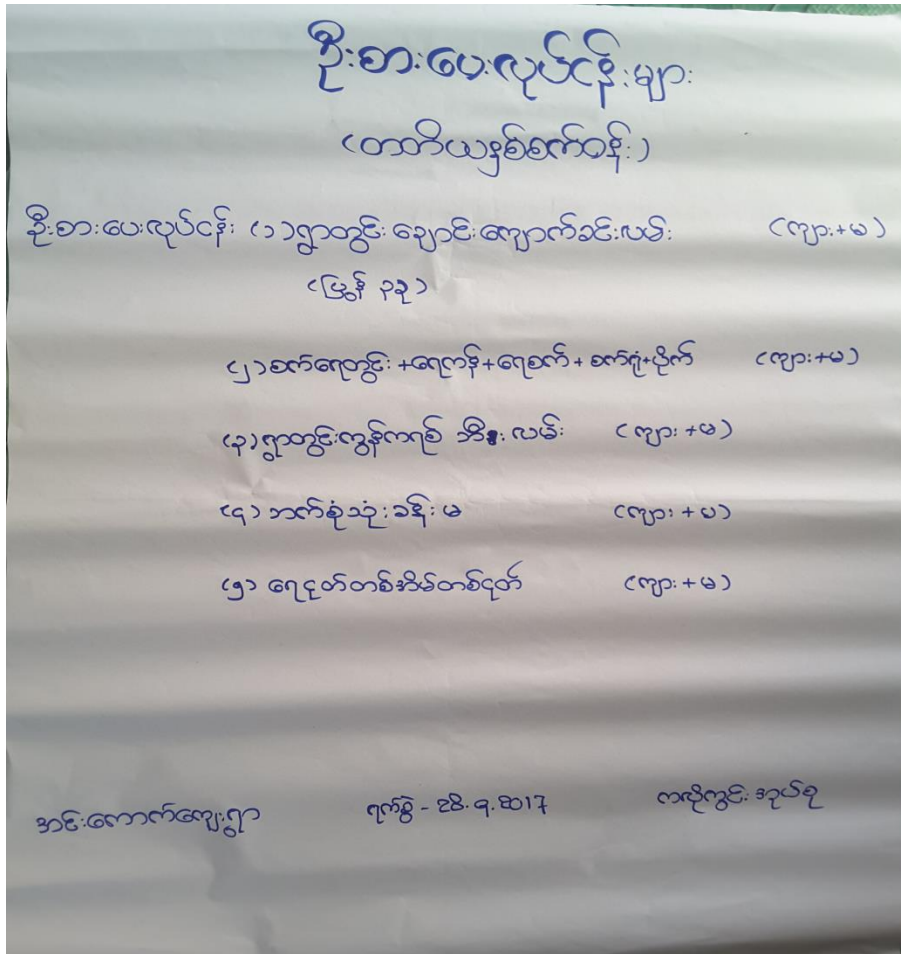 ဦးစားပေးလုပ်ငန်းများ
(တတိယနှစ်စက်ဝန်း)
ဦးစားပေးလုပ်ငန်း (၁) ရွာတွင်းချောင်းကျောက်ခင်းလမ်း (ကျား+မ)
(ပြွန် ၃ခု)
(၂) စက်ရေတွင်း+ရေကန်+ရေစက်+စက်ရုံ+ပိုက် (ကျား+မ)
(၃) ရွာတွင်းကွန်ကရစ် လမ်း (ကျား+မ)
(၄) ဘက်စုံသုံးခန်းမ (ကျား+မ)
(၅) ရေငုတ်တစ်အိမ်တစ်ငုတ် (ကျား+မ)
အင်းကောက်ကျေးရွာ ရက်စွဲ - 28.9.2017 အုပ်စု